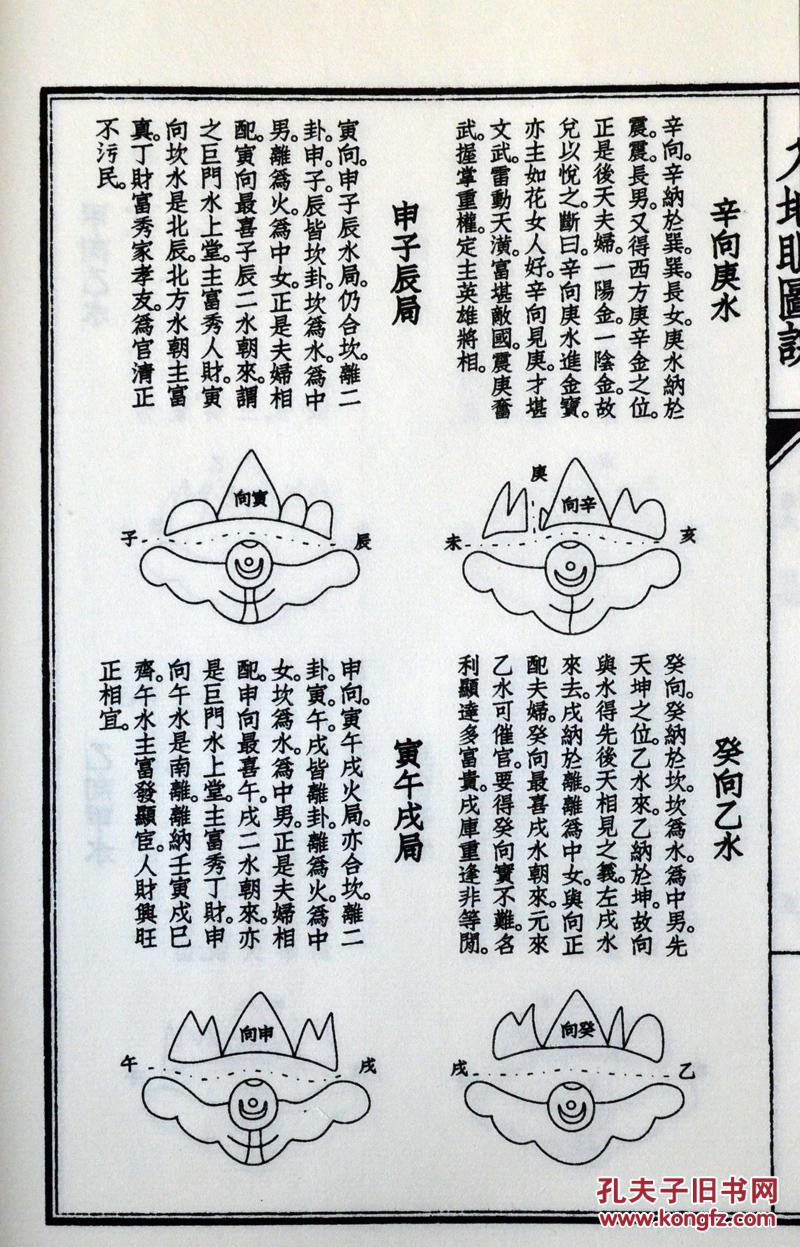 大地眼圖説
辛向庚水
辛向。辛納於巽。巽長女。庚水納於
震。震長男。又得西方庚辛金之位。
正是後天夫婦。一陽金。一陰金。故
兌以悅之。斷曰。辛向庚水進金寶。
亦主如花女人好。辛向見庚才堪
文武。雷動天潢。富堪敵國。震庚奮
武。握掌重權。定主英雄將相。
庚
向辛
未
亥
申子辰局
寅向。申子辰水局。仍合坎。離二
卦。申子辰皆坎卦。坎爲水。爲中
男。離爲火。爲中女。正是夫婦相
配。寅向最喜子辰二水朝來。謂
之巨門水上堂。主富秀人財。寅
向坎水是北辰。北方水朝主富
真。丁財富秀家孝友。爲官清正
不污民。
向寅
子
辰
癸向乙水
癸向。癸納於坎。坎爲水。爲中男。先
天坤之位。乙水來。乙納於坤。故向
與水得先後天相見之義。左戌水
來去。戌納於離。離爲中女。與向正
配夫婦。癸向最喜戌水朝來。元來
乙水可催官。要得癸向實不難。名
利顯達多富貴。戌庫重逢非等閒。
向癸
戌
乙
寅午戌局
申向。寅午戌火局。亦合坎。離二
卦。寅午戌皆離卦。離爲火。爲中
女。坎爲水。爲中男。正是夫婦相
配。申向最喜午戌二水朝來。亦
是巨門水上堂。主富秀丁財。申
向午水是南離。離納壬寅戌巳
齊。午水主富發顯宦。人財興旺
正相宜。
向申
午
戌
孔夫子旧书网
www.kongfz.com